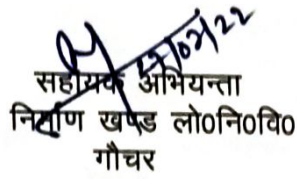 27/02/22
सहायक अभियन्ता
निर्माण खण्ड लो0नि0वि0
गौचर